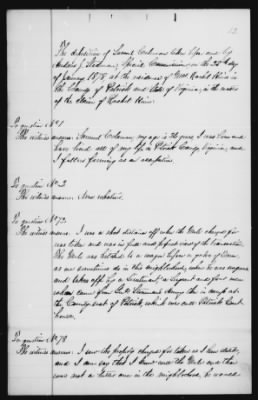 12
The deposition of Samuel Coleman taken before me by
Andrew J. Stedman, Special Commissioner on the 25th day
of January 1878 at the residence of Mrs Rachel Hines in
the County of Patrick and State of Virginia, in the matter
of the Claim of Rachel Hines.
To question No 1
The witness answers: Samuel Coleman, my age is years I was born and
have lived all of my life in Patrick County Virginia, and
I follow farming as an occupation.
To question No 2
The witness answers: Nere relative.
To question No 72
The witness answers: I was a short distance off when the Mule charged for
was taken and was in full and perfect view of the transaction.
The Mule was hitched to a wagon before a yoke of Oxen,
as we sometimes do in this neighborhood, when he was ungeared
and taken off by a Lieutenant, a Sergeant and four men
whom came from Genl Stoneman's troops then in camp at
the County seat of Patrick which we call Patrick Court
house.
To question No 78
The witness answers: I saw the property charged for taken as I have stated,
and I can say that I knew well the Mule and there
was not a better one in the neighborhood, he would